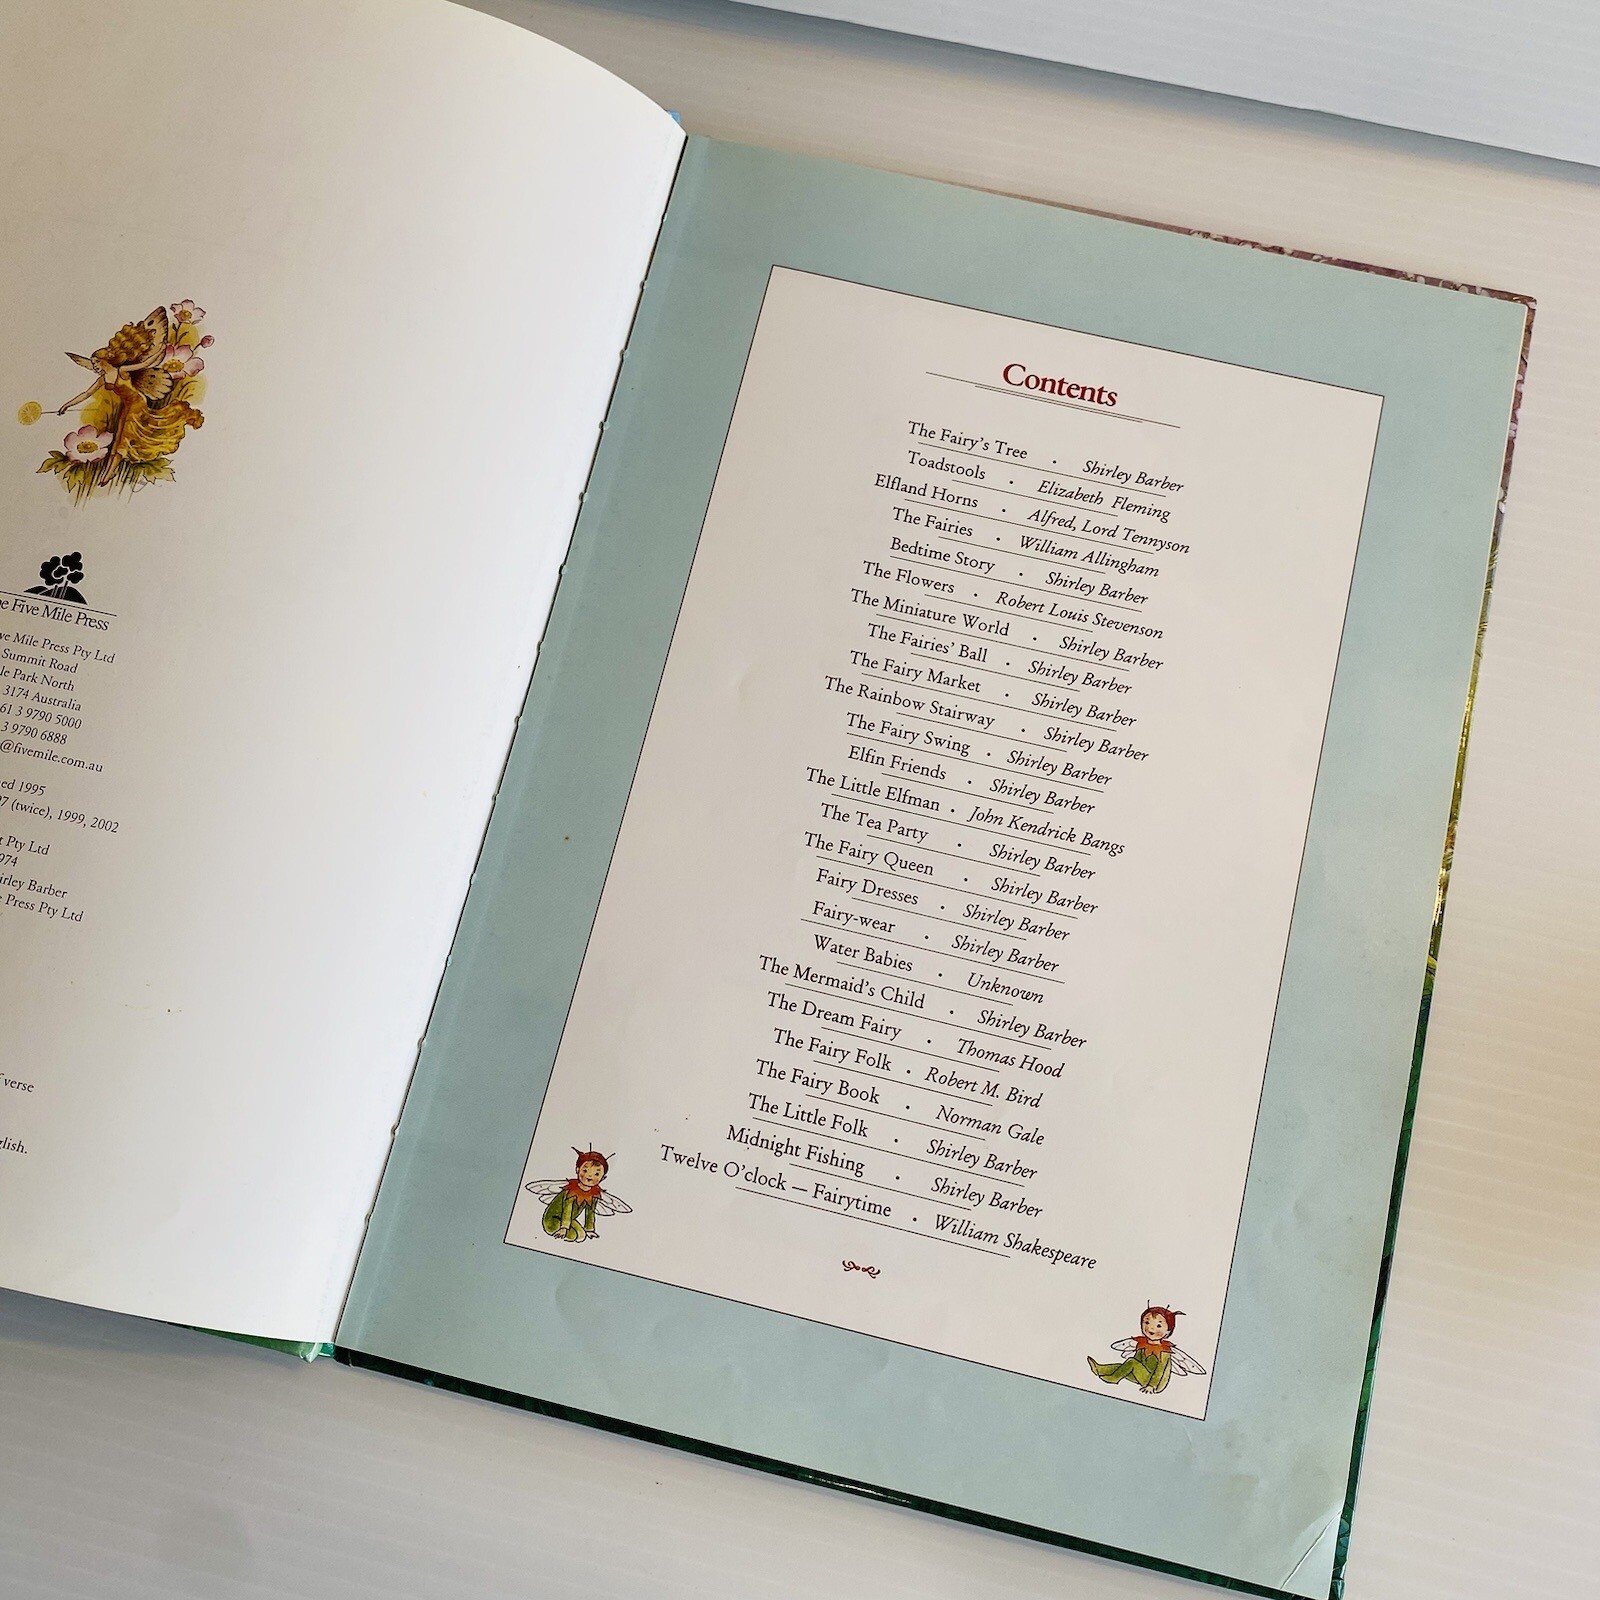 Five Mile Press
Mile Press Pty Ltd
Summit Road
Park North
3174 Australia
61 3 9790 5000
3 9790 6888
@fivemile.com.au
1995
(twice), 1999, 2002
Pty Ltd
Barber
Press Pty Ltd
verse
Contents
The Fairy's Tree • Shirley Barber
Toadstools • Elizabeth Fleming
Elfland Horns • Alfred, Lord Tennyson
The Fairies • William Allingham
Bedtime Story • Shirley Barber
The Flowers • Robert Louis Stevenson
The Miniature World • Shirley Barber
The Fairies' Ball • Shirley Barber
The Fairy Market • Shirley Barber
The Rainbow Stairway • Shirley Barber
The Fairy Swing • Shirley Barber
Elfin Friends • Shirley Barber
The Little Elfman • John Kendrick Bangs
The Tea Party • Shirley Barber
The Fairy Queen • Shirley Barber
Fairy Dresses • Shirley Barber
Fairy-wear • Shirley Barber
Water Babies • Unknown
The Mermaid's Child • Shirley Barber
The Dream Fairy • Thomas Hood
The Fairy Folk • Robert M. Bird
The Fairy Book • Norman Gale
The Little Folk • Shirley Barber
Midnight Fishing • Shirley Barber
Twelve O'clock – Fairytime • William Shakespeare